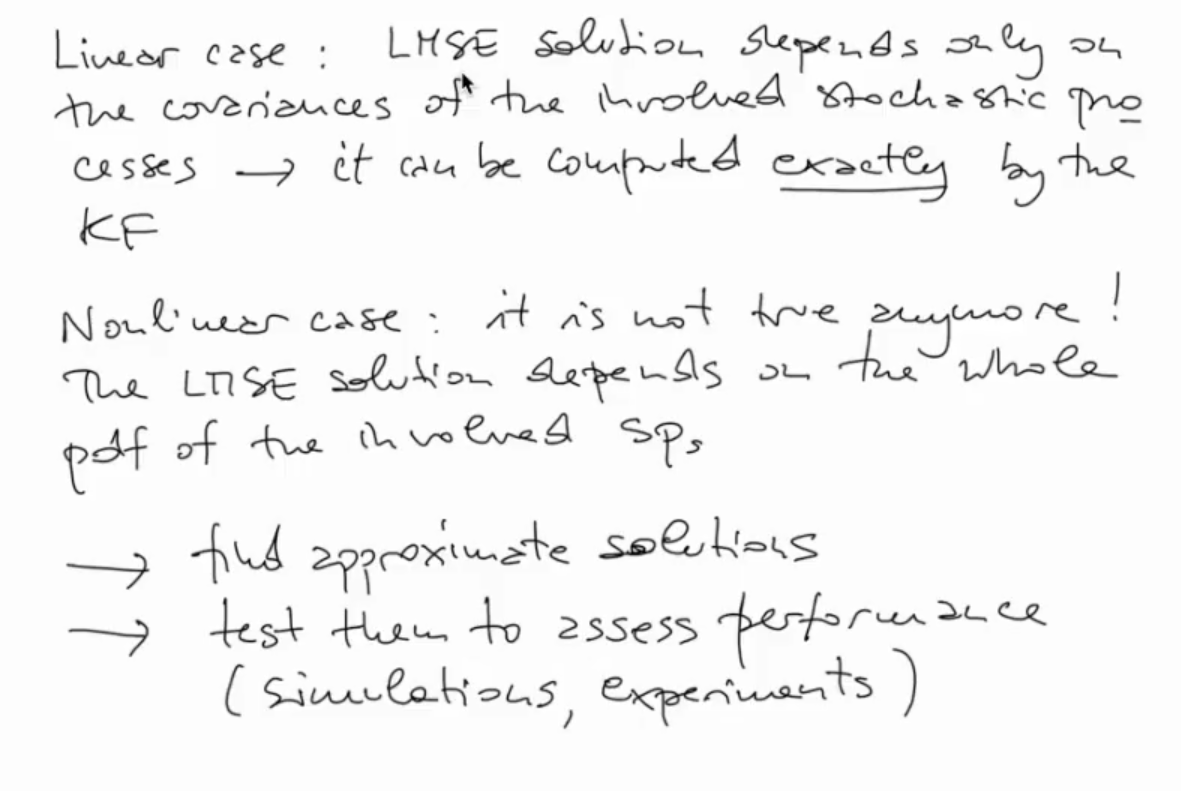 Linear case : LMSE solution depends only on
the covariances of the involved stochastic pro
cesses → it can be computed exactly by the
KF
Nonlinear case : it is not true anymore !
The LMSE solution depends on the whole
pdf of the involved SPs
→ find approximate solutions
→ test them to assess performance
(simulations, experiments)